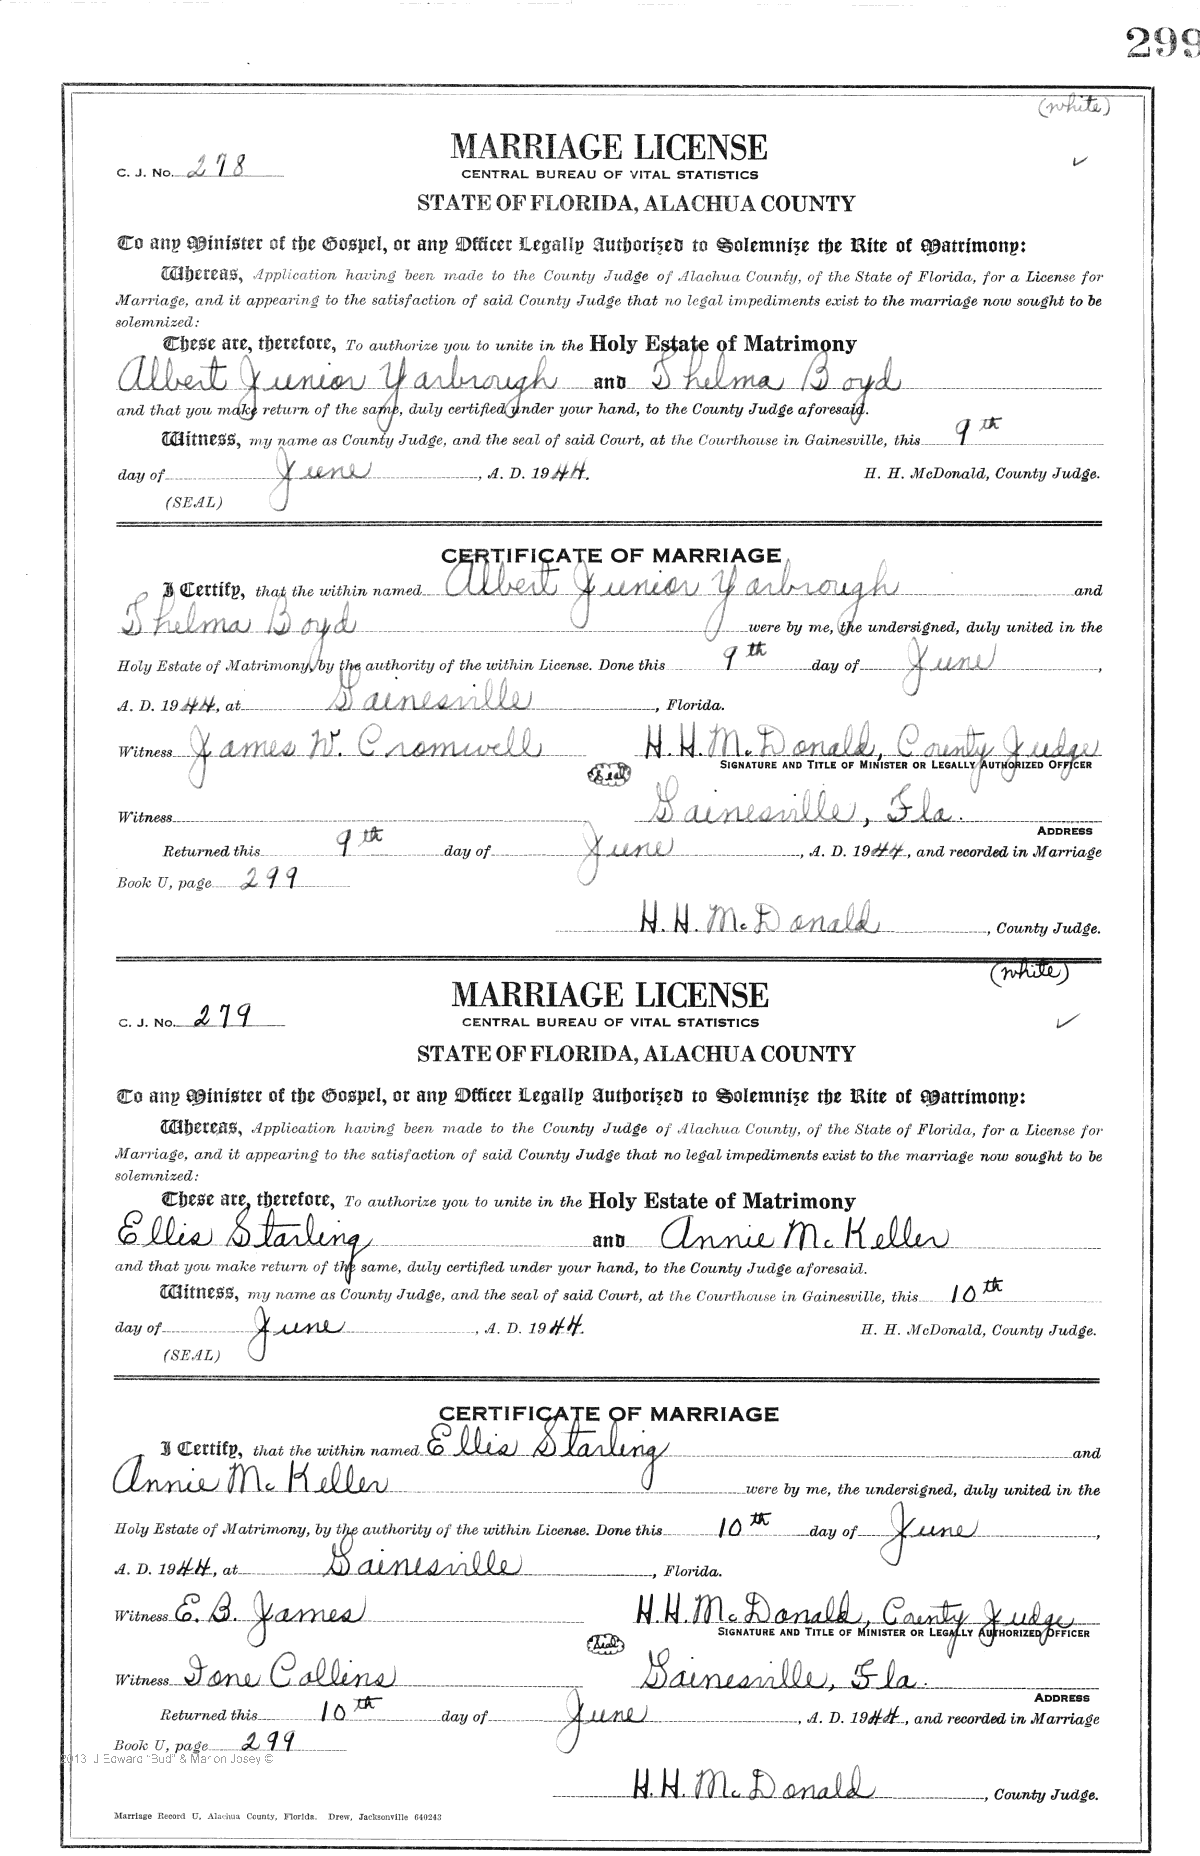 299
(white)
MARRIAGE LICENSE
C. J. No. 278
CENTRAL BUREAU OF VITAL STATISTICS
STATE OF FLORIDA, ALACHUA COUNTY
To any Minister of the Gospel, or any Officer Legally Authorized to Solemnize the Rite of Matrimony:
Whereas, Application having been made to the County Judge of Alachua County, of the State of Florida, for a License for
Marriage, and it appearing to the satisfaction of said County Judge that no legal impediments exist to the marriage now sought to be
solemnized:
These are, therefore, To authorize you to unite in the Holy Estate of Matrimony
Albert Junior Yarbrough and Thelma Boyd
and that you make return of the same, duly certified under your hand, to the County Judge aforesaid.
Witness, my name as County Judge, and the seal of said Court, at the Courthouse in Gainesville, this 9th
day of June, A. D. 1944. H. H. McDonald, County Judge.
(SEAL)
CERTIFICATE OF MARRIAGE
I Certify, that the within named Albert Junior Yarbrough and
Thelma Boyd were by me, the undersigned, duly united in the
Holy Estate of Matrimony, by the authority of the within License. Done this 9th day of June,
A. D. 1944, at Gainesville, Florida.
Witness James W. Cromwell H. H. McDonald, County Judge
(Seal) SIGNATURE AND TITLE OF MINISTER OR LEGALLY AUTHORIZED OFFICER
Witness Gainesville, Fla.
ADDRESS
Returned this 9th day of June, A. D. 1944, and recorded in Marriage
Book U, page 299
H. H. McDonald, County Judge.
(white)
MARRIAGE LICENSE
C. J. No. 279
CENTRAL BUREAU OF VITAL STATISTICS
STATE OF FLORIDA, ALACHUA COUNTY
To any Minister of the Gospel, or any Officer Legally Authorized to Solemnize the Rite of Matrimony:
Whereas, Application having been made to the County Judge of Alachua County, of the State of Florida, for a License for
Marriage, and it appearing to the satisfaction of said County Judge that no legal impediments exist to the marriage now sought to be
solemnized:
These are, therefore, To authorize you to unite in the Holy Estate of Matrimony
Ellis Starling and Annie McKeller
and that you make return of the same, duly certified under your hand, to the County Judge aforesaid.
Witness, my name as County Judge, and the seal of said Court, at the Courthouse in Gainesville, this 10th
day of June, A. D. 1944. H. H. McDonald, County Judge.
(SEAL)
CERTIFICATE OF MARRIAGE
I Certify, that the within named Ellis Starling and
Annie McKeller were by me, the undersigned, duly united in the
Holy Estate of Matrimony, by the authority of the within License. Done this 10th day of June,
A. D. 1944, at Gainesville, Florida.
Witness E. B. James H. H. McDonald, County Judge
(Seal) SIGNATURE AND TITLE OF MINISTER OR LEGALLY AUTHORIZED OFFICER
Witness Ione Collins Gainesville, Fla.
ADDRESS
Returned this 10th day of June, A. D. 1944, and recorded in Marriage
Book U, page 299
2013 J Edward "Bud" & Marion Josey ©
H. H. McDonald, County Judge.
Marriage Record U, Alachua County, Florida. Drew, Jacksonville 640243